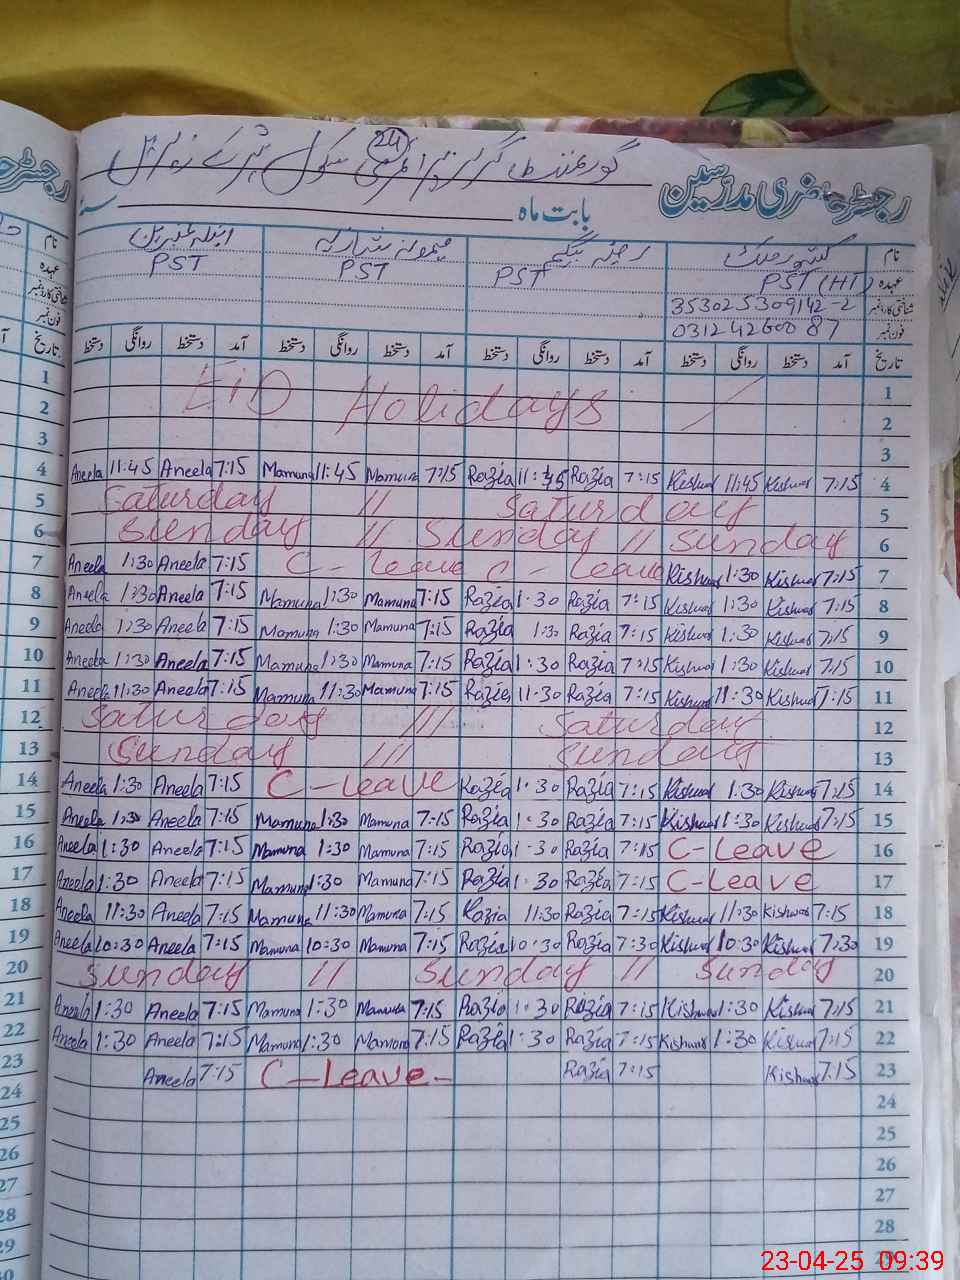 رجسٹر حاضری مدرسین
گورنمنٹ گرلز پرائمری سکول
24
بابت ماہ
نام
عہدہ PST (HT) PST PST PST
شناختی کارڈ نمبر 353025309142-2
فون نمبر 03124260087
تاریخ آمد دستخط روانگی دستخط آمد دستخط روانگی دستخط آمد دستخط روانگی دستخط آمد دستخط روانگی دستخط
1 EiD Holidays 1
2 2
3 3
4 Aneela 11:45 Aneela 7:15 Mamuna 11:45 Mamuna 7:15 Razia 11:45 Razia 7:15 Kishwar 11:45 Kishwar 7:15 4
5 Saturday // Saturday 5
6 Sunday // Sunday // Sunday 6
7 Aneela 1:30 Aneela 7:15 C-leave C-leave Kishwar 1:30 Kishwar 7:15 7
8 Aneela 1:30 Aneela 7:15 Mamuna 1:30 Mamuna 7:15 Razia 1:30 Razia 7:15 Kishwar 1:30 Kishwar 7:15 8
9 Aneela 1:30 Aneela 7:15 Mamuna 1:30 Mamuna 7:15 Razia 1:30 Razia 7:15 Kishwar 1:30 Kishwar 7:15 9
10 Aneela 1:30 Aneela 7:15 Mamuna 1:30 Mamuna 7:15 Razia 1:30 Razia 7:15 Kishwar 1:30 Kishwar 7:15 10
11 Aneela 11:30 Aneela 7:15 Mamuna 11:30 Mamuna 7:15 Razia 11:30 Razia 7:15 Kishwar 11:30 Kishwar 7:15 11
12 Saturday /// Saturday 12
13 Sunday /// Sunday 13
14 Aneela 1:30 Aneela 7:15 C-leave Razia 1:30 Razia 7:15 Kishwar 1:30 Kishwar 7:15 14
15 Aneela 1:30 Aneela 7:15 Mamuna 1:30 Mamuna 7:15 Razia 1:30 Razia 7:15 Kishwar 1:30 Kishwar 7:15 15
16 Aneela 1:30 Aneela 7:15 Mamuna 1:30 Mamuna 7:15 Razia 1:30 Razia 7:15 C-Leave 16
17 Aneela 1:30 Aneela 7:15 Mamuna 1:30 Mamuna 7:15 Razia 1:30 Razia 7:15 C-Leave 17
18 Aneela 11:30 Aneela 7:15 Mamuna 11:30 Mamuna 7:15 Razia 11:30 Razia 7:15 Kishwar 11:30 Kishwar 7:15 18
19 Aneela 10:30 Aneela 7:15 Mamuna 10:30 Mamuna 7:15 Razia 10:30 Razia 7:30 Kishwar 10:30 Kishwar 7:30 19
20 Sunday // Sunday // Sunday 20
21 Aneela 1:30 Aneela 7:15 Mamuna 1:30 Mamuna 7:15 Razia 1:30 Razia 7:15 Kishwar 1:30 Kishwar 7:15 21
22 Aneela 1:30 Aneela 7:15 Mamuna 1:30 Mamuna 7:15 Razia 1:30 Razia 7:15 Kishwar 1:30 Kishwar 7:15 22
23 Aneela 7:15 C-Leave- Razia 7:15 Kishwar 7:15 23
24 24
25 25
26 26
27 27
28 28
29 29
30
23-04-25 09:39